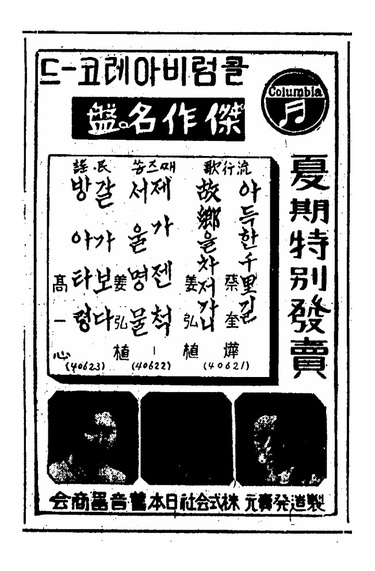 콜럼비아레코-드
Columbia
傑作名盤
夏期特別發賣
流行歌
아득한千里길
蔡奎燁
故鄕을차저가니
姜弘植
(40621)
째즈쏭
제가젠척
서울명물
姜弘植
(40622)
民·謠
갈가보다
방아타령
高一心
(40623)
製造発賣元 株式会社日本蓄音器商会